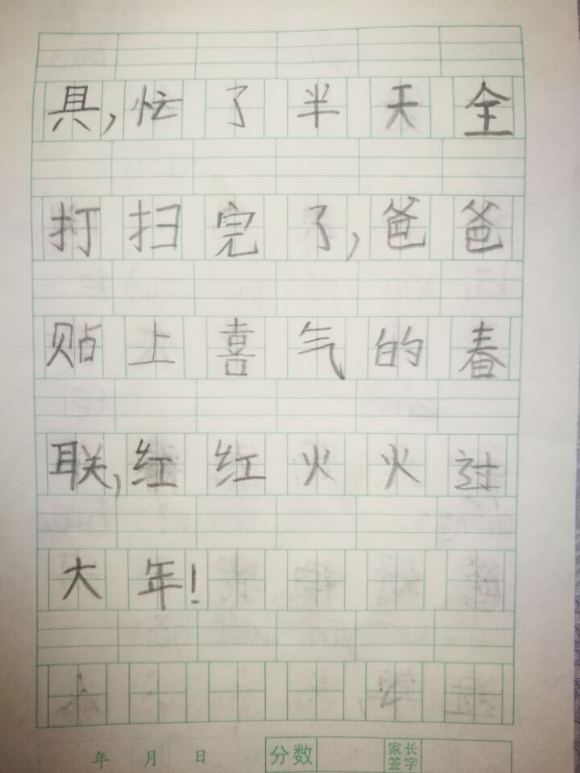 具,忙了半天全
打扫完了,爸爸
贴上喜气的春
联,红红火火过
大年!
年 月 日 分数 家长签字